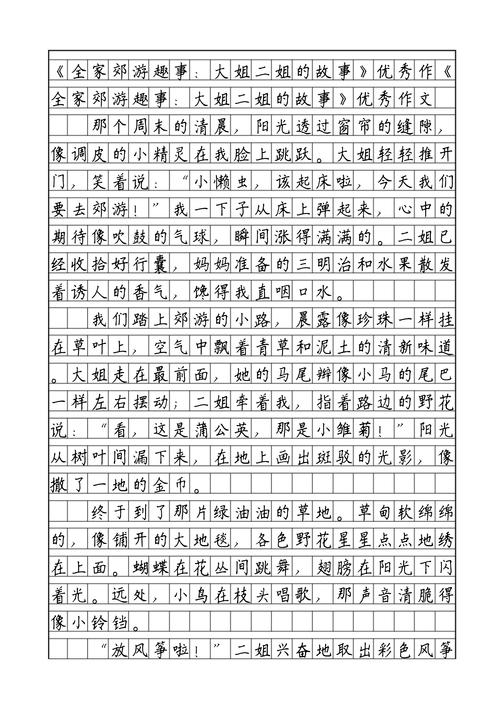 《全家郊游趣事：大姐二姐的故事》优秀作《
全家郊游趣事：大姐二姐的故事》优秀作文
那个周末的清晨，阳光透过窗帘的缝隙，
像调皮的小精灵在我脸上跳跃。大姐轻轻推开
门，笑着说：“小懒虫，该起床啦，今天我们
要去郊游！”我一下子从床上弹起来，心中的
期待像吹鼓的气球，瞬间涨得满满的。二姐已
经收拾好行囊，妈妈准备的三明治和水果散发
着诱人的香气，馋得我直咽口水。
我们踏上郊游的小路，晨露像珍珠一样挂
在草叶上，空气中飘着青草和泥土的清新味道
。大姐走在最前面，她的马尾辫像小马的尾巴
一样左右摆动；二姐牵着我，指着路边的野花
说：“看，这是蒲公英，那是小雏菊！”阳光
从树叶间漏下来，在地上画出斑驳的光影，像
撒了一地的金币。
终于到了那片绿油油的草地。草甸软绵绵
的，像铺开的大地毯，各色野花星星点点地绣
在上面。蝴蝶在花丛间跳舞，翅膀在阳光下闪
着光。远处，小鸟在枝头唱歌，那声音清脆得
像小铃铛。
“放风筝啦！”二姐兴奋地取出彩色风筝